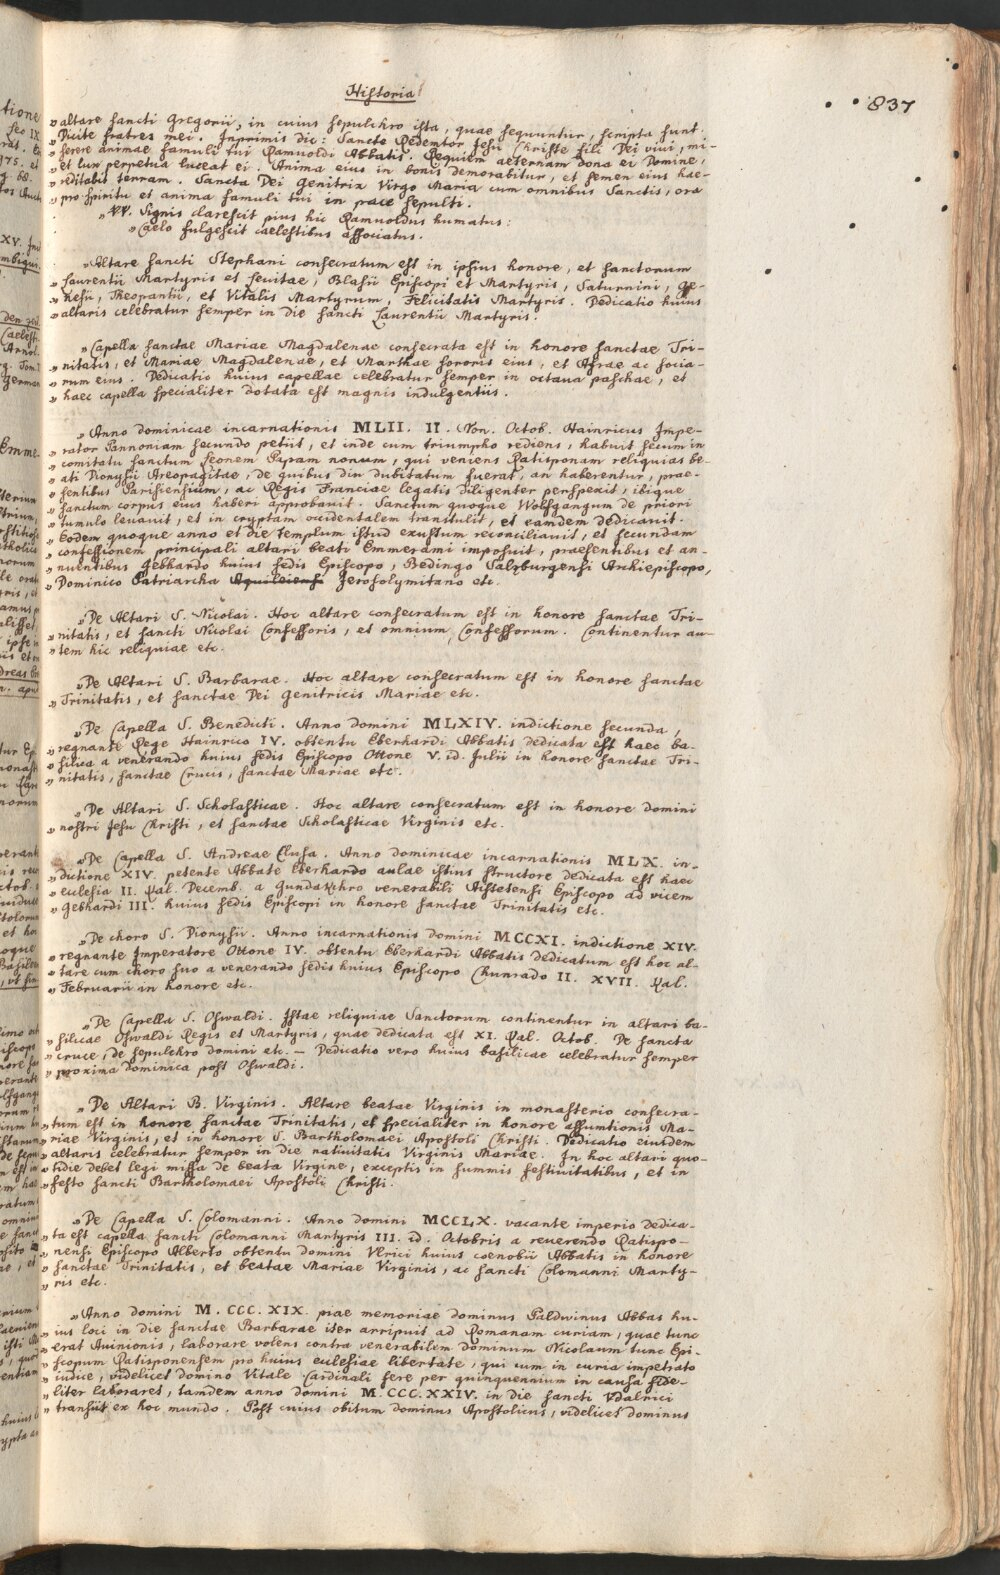 Historia
837
„altare sancti Gregorii, in cuius sepulchro ista, quae sequuntur, scripta sunt.
„Dicite fratres mei. Inprimis dic: Sancte Redemtor Jesu Christe fili Dei vivi, mi-
„serere animae famuli tui Ramuoldi Abbatis. Requiem aeternam dona ei Domine,
„et lux perpetua luceat ei. Anima eius in bonis demorabitur, et semen eius hae-
„reditabit terram. Sancta Dei genitrix Virgo Maria cum omnibus Sanctis, ora
„pro spiritu et anima famuli tui in pace sepulti.
„VV. Signis clarescit pius hic Ramuoldus humatus:
„Caelo fulgescit caelestibus associatus.
„Altare sancti Stephani consecratum est in ipsius honore, et sanctorum
„Laurentii Martyris et Levitae, Blasii Episcopi et Martyris, Saturnini, Ge-
„nesii, Theopantii, et Vitalis Martyrum, Felicitatis Martyris. Dedicatio huius
„altaris celebratur semper in die sancti Laurentii Martyris.
„Capella sanctae Mariae Magdalenae consecrata est in honore sanctae Tri-
„nitatis, et Mariae Magdalenae, et Marthae sororis eius, et Afrae ac socia-
„rum eius. Dedicatio huius capellae celebratur semper in octava paschae, et
„haec capella specialiter dotata est magnis indulgentiis.
„Anno dominicae incarnationis MLII. II. Non. Octob. Hainricus Impe-
„rator Pannoniam secundo petiit, et inde cum triumpho rediens, habuit secum in
„comitatu sanctum Leonem Papam nonum, qui veniens Ratisponam reliquias be-
„ati Dionysii Areopagitae, de quibus diu dubitatum fuerat, an haberentur, prae-
„sentibus Parisiensium, ac Regis Franciae legatis diligenter perspexit, ibique
„sanctum corpus eius haberi approbavit. Sanctum quoque Wolfgangum de priori
„tumulo levavit, et in cryptam occidentalem transtulit, et eamdem dedicavit.
„Eodem quoque anno et die templum istud exustum reconciliavit, et secundam
„confessionem principali altari beati Emmerami imposuit, praesentibus et an-
„nuentibus Gebhardo huius sedis Episcopo, Bedingo Salzburgensi Archiepiscopo,
„Dominico Patriarcha Aquileiensi Jerosolymitano etc.
„De Altari S. Nicolai. Hoc altare consecratum est in honore sanctae Tri-
„nitatis, et sancti Nicolai Confessoris, et omnium Confessorum. Continentur au-
„tem hic reliquiae etc.
„De Altari S. Barbarae. Hoc altare consecratum est in honore sanctae
„Trinitatis, et sanctae Dei genitricis Mariae etc.
„De Capella S. Benedicti. Anno domini MLXIV. indictione secunda,
„regnante Rege Hainrico IV. obtentu Eberhardi Abbatis dedicata est haec ba-
„silica a venerando huius sedis Episcopo Ottone V. id. Julii in honore sanctae Tri-
„nitatis, sanctae Crucis, sanctae Mariae etc.
„De Altari S. Scholasticae. Hoc altare consecratum est in honore domini
„nostri Jesu Christi, et sanctae Scholasticae Virginis etc.
„De Capella S. Andreae Clusa. Anno dominicae incarnationis MLX. in-
„dictione XIV. petente Abbate Eberhardo aulae istius structore dedicata est haec
„ecclesia II. Kal. Decemb. a Gundakchro venerabili Aistetensi Episcopo ad vicem
„Gebhardi III. huius sedis Episcopi in honore sanctae Trinitatis etc.
„De choro S. Dionysii. Anno incarnationis domini MCCXI. indictione XIV.
„regnante Imperatore Ottone IV. obtentu Eberhardi Abbatis dedicatum est hoc al-
„tare cum choro suo a venerando sedis huius Episcopo Chunrado II. XVII. Kal.
„Februarii in honore etc.
„De Capella S. Oswaldi. Istae reliquiae Sanctorum continentur in altari ba-
„silicae Oswaldi Regis et Martyris, quae dedicata est XI. Kal. Octob. De sancta
„cruce, de sepulchro domini etc. — Dedicatio vero huius basilicae celebratur semper
„proxima dominica post Oswaldi.
„De Altari B. Virginis. Altare beatae Virginis in monasterio consecra-
„tum est in honore sanctae Trinitatis, et specialiter in honore assumtionis Ma-
„riae Virginis, et in honore S. Bartholomaei Apostoli Christi. Dedicatio eiusdem
„altaris celebratur semper in die nativitatis Virginis Mariae. In hoc altari quo-
„tidie debet legi missa de beata Virgine, exceptis in summis festivitatibus, et in
„festo sancti Bartholomaei Apostoli Christi.
„De Capella S. Colomanni. Anno domini MCCLX. vacante imperio dedica-
„ta est capella sancti Colomanni Martyris III. id. Octobris a reverendo Ratispo-
„nensi Episcopo Alberto obtentu domini Ulrici huius coenobii Abbatis in honore
„sanctae Trinitatis, et beatae Mariae Virginis, ac sancti Colomanni Marty-
„ris etc.
„Anno domini M. CCC. XIX. piae memoriae dominus Paldwinus Abbas hu-
„ius loci in die sanctae Barbarae iter arripuit ad Romanam curiam, quae tunc
„erat Avinionis, laborare volens contra venerabilem dominum Nicolaum tunc Epi-
„scopum Ratisponensem pro huius ecclesiae libertate, qui cum in curia impetrato
„iudice, videlicet domino Vitale Cardinali fere per quinquennium in causa fide-
„liter laboraret, tamdem anno domini M. CCC. XXIV. in die sancti Vdalrici
„transiit ex hoc mundo. Post cuius obitum dominus Apostolicus, videlicet dominus